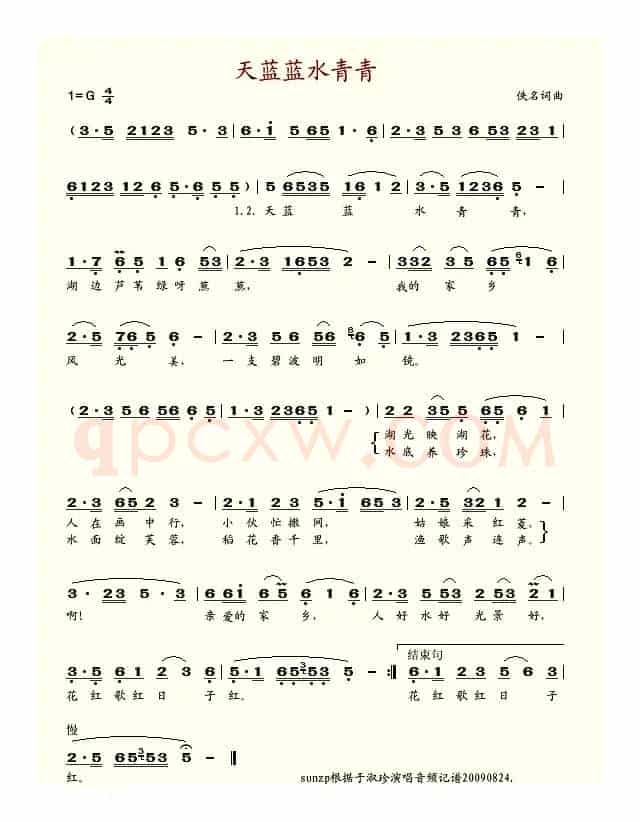 天蓝蓝水青青
1=G 4/4 佚名词曲
(3·5 2123 5·3 | 6·i 5 651 1·6 | 2·3 53 6 53 23 1 |
6123 126 5·6 5 5) | 5 6535 16 1 2 | 3·5 1236 5 - |
1.2.天蓝 蓝 水 青 青,
1·7 6 5 1 6 53 | 2·3 1653 2 - | 332 35 65 1 6 |
湖边芦苇绿呀蕉蕉, 我的家 乡
2·5 765 6 - | 2·3 5 5 56 6 5 | 1·3 2365 1 - |
风 光 美, 一支碧波明如 镜。
(2·3 56 56 56 | 1·3 2365 1 -) | 2 2 35 5 65 6 1 |
湖光映 湖花,
水底养 珍珠,
2·3 65 2 3 - | 2·1 2 3 5·i 653 | 2·5 32 1 2 - |
人在画中行, 小伙忙撒网, 姑娘采红菱,
水面绽芙蓉, 稻花香千里, 渔歌声连声。
3· 23 5·3 | 661 6 5 3 - | 6·1 2 3 5 6 21 |
啊! 亲爱的家 乡, 人好水好光景好,
结束句
3·5 61 2 3 | 5·1 65 53 5 - :| 6·1 23 5 6 3 |
花红歌红日 子红。 花红歌红日 子
慢
2·5 65 53 5 - ||
红。
sunzp根据于淑珍演唱音频记谱20090824.
qpcxw.COM